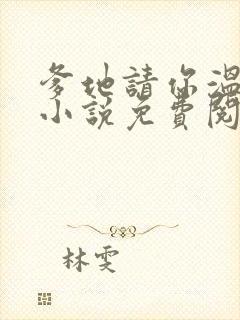 爹地請你溫
小說免費閱
林雯